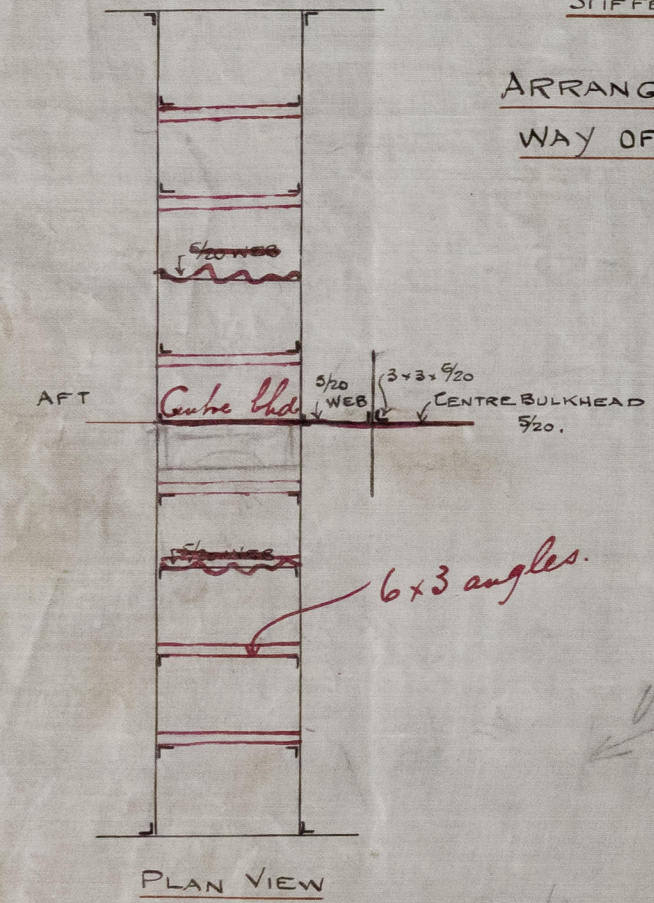 ARRANG
WAY OF
5/20 WEB
AFT
Centre bhd
5/20
WEB
3 x 3 x 5/20
CENTRE BULKHEAD
5/20.
5/20 WEB
6 x 3 angles.
PLAN VIEW